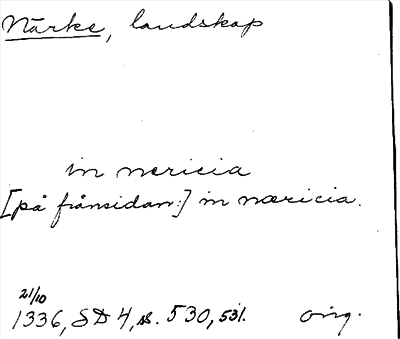 Närke, landskap
in nericia
[på frånsidan:] in næricia.
21/10
1336, SD 4, s. 530, 531. orig.